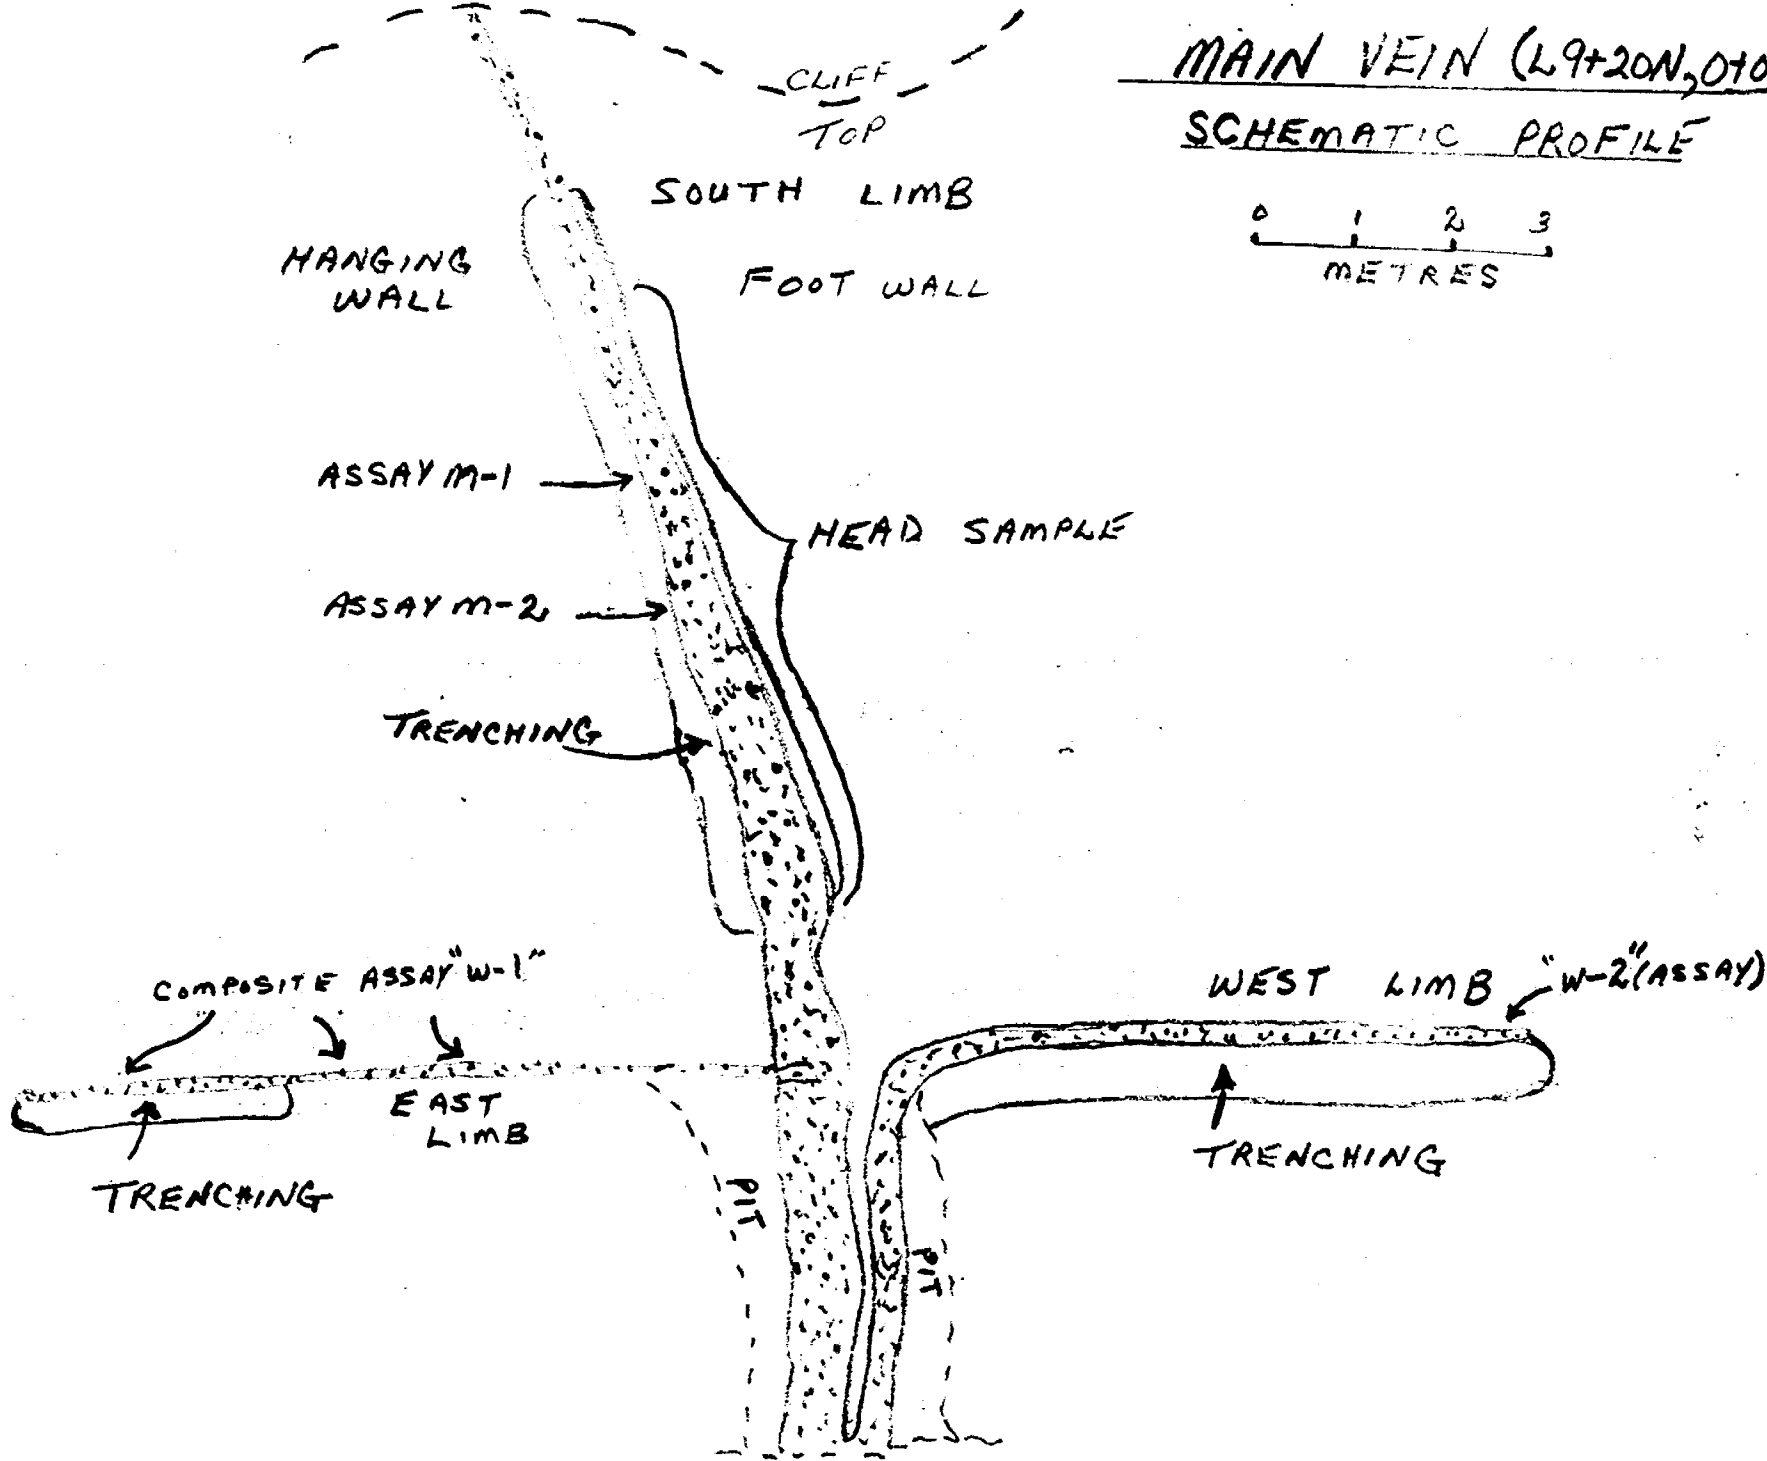 MAIN VEIN (L9+20N, 0+0
SCHEMATIC PROFILE
0 1 2 3
METRES
CLIFF
TOP
SOUTH LIMB
HANGING
WALL
FOOT WALL
ASSAY M-1
HEAD SAMPLE
ASSAY M-2
TRENCHING
COMPOSITE ASSAY "W-1"
WEST LIMB
"W-2" (ASSAY)
EAST
LIMB
TRENCHING
TRENCHING
PIT
PIT